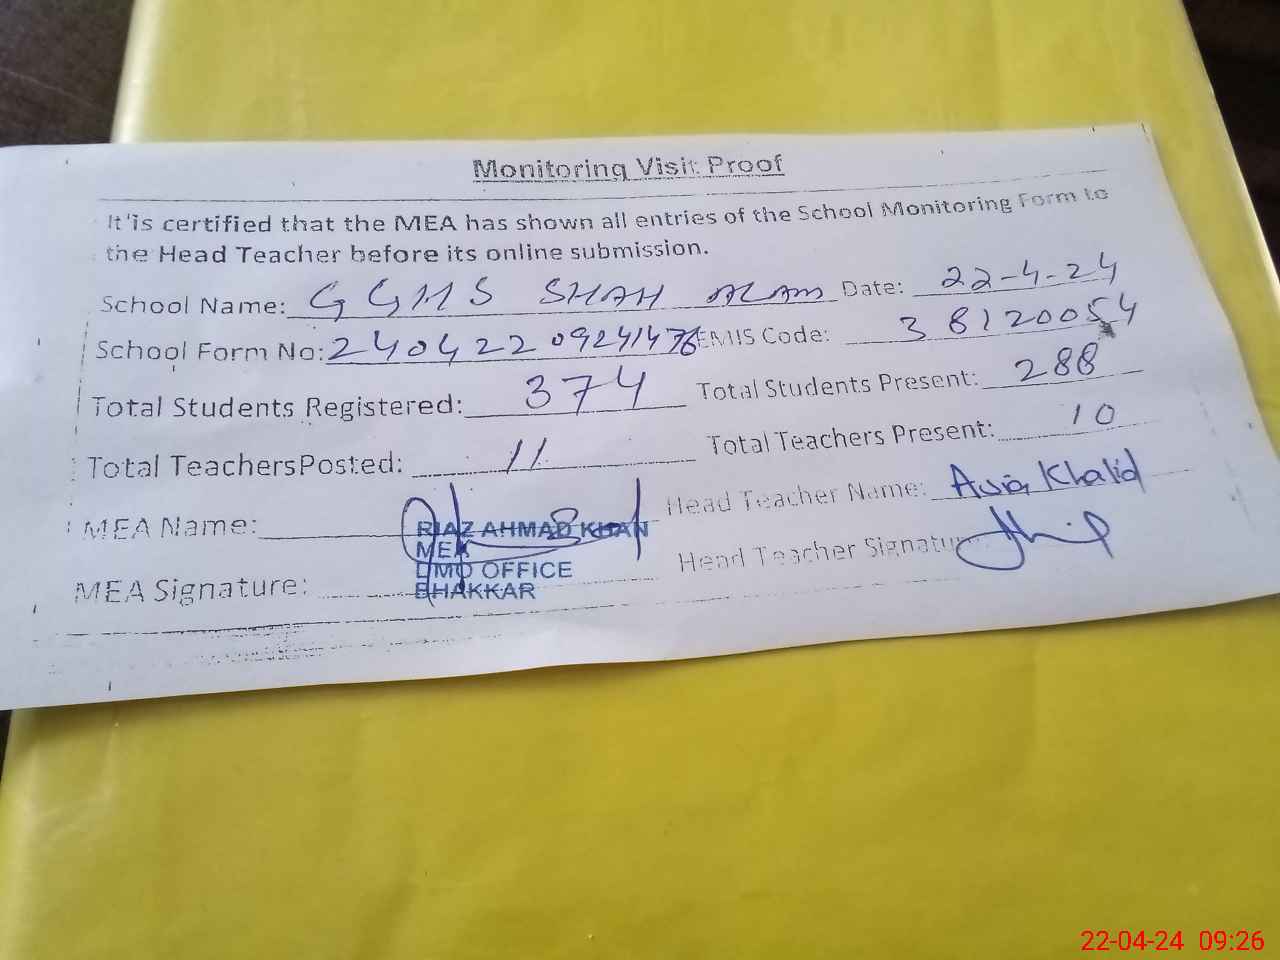 Monitoring Visit Proof
It is certified that the MEA has shown all entries of the School Monitoring Form to
the Head Teacher before its online submission.
School Name: GGHS SHAH ALAM Date: 22-4-24
School Form No: 240422092414 EMIS Code: 38120054
Total Students Registered: 374 Total Students Present: 288
Total Teachers Posted: 11 Total Teachers Present: 10
MEA Name: Head Teacher Name: Khalid
RIAZ AHMAD KHAN
MEA
DMO OFFICE
BHAKKAR
MEA Signature: Head Teacher Signature
22-04-24 09:26